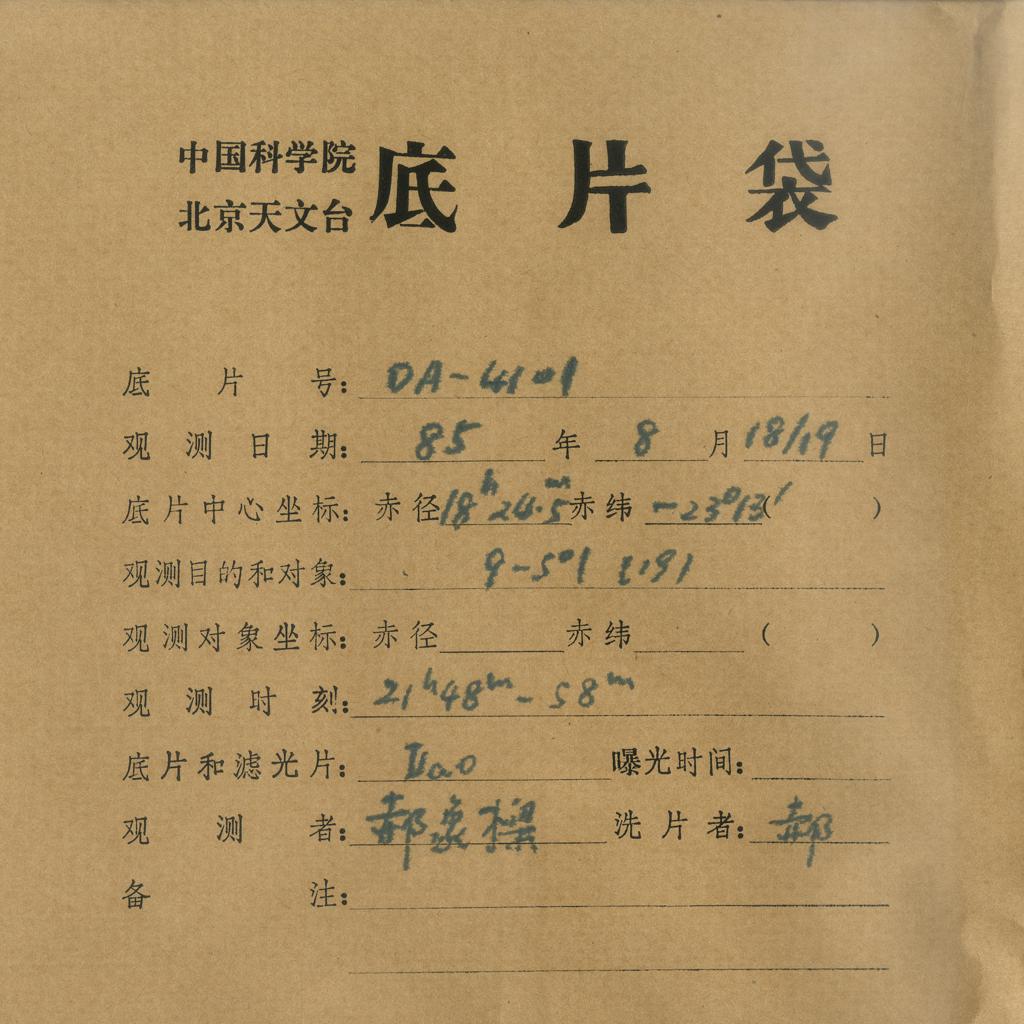 中国科学院
北京天文台
底片袋
底片号: DA-4101
观测日期: 85年8月18/19日
底片中心坐标: 赤径18ʰ24.5ᵐ赤纬-23°13′( )
观测目的和对象: 9-501 (19)
观测对象坐标: 赤径 赤纬 ( )
观测时刻: 21ʰ48ᵐ-58ᵐ
底片和滤光片: IIaO 曝光时间:
观测者: 郝象樑 洗片者: 郝
备注: